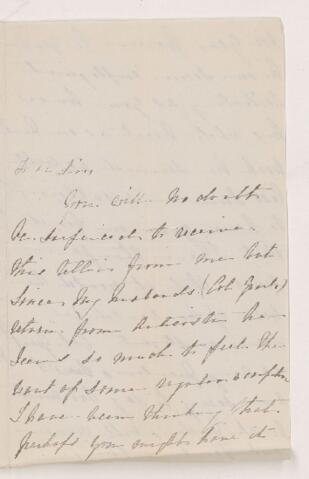 Dear Sir
You will no doubt
be surprised to receive
this letter from me but
since my husbands (Col
return from he
seems so much to feel the
want of some regular occupation
I have been thinking that
perhaps you might have it